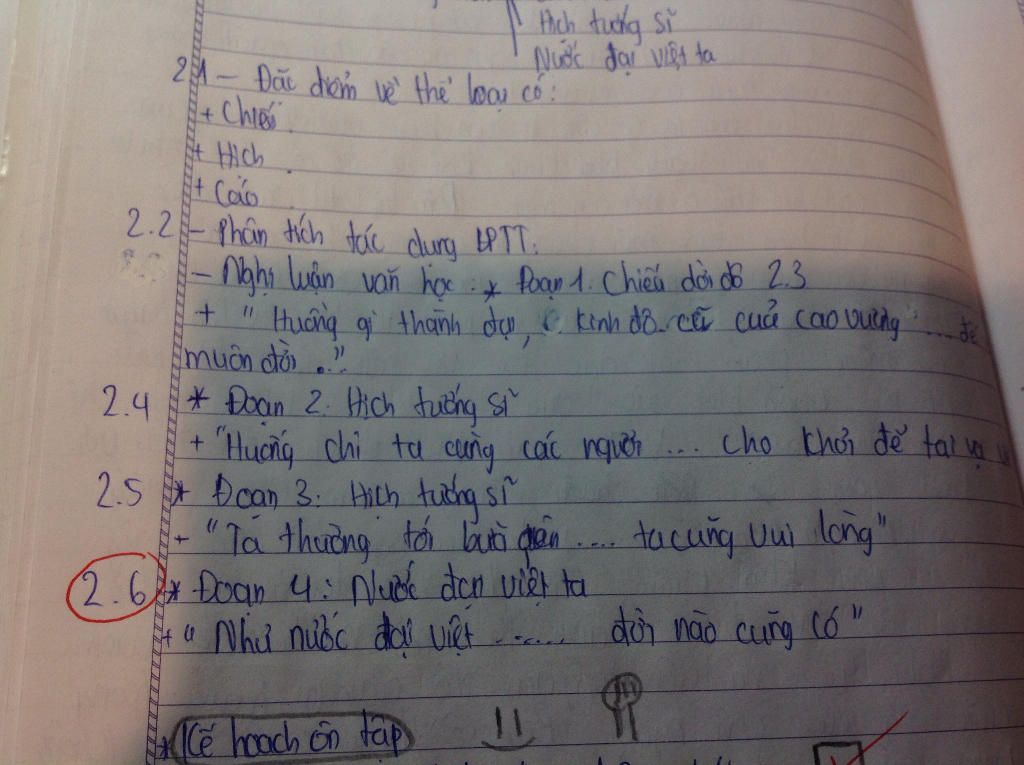 Hịch tướng sĩ
Nước đại việt ta
2.1 - Đặc điểm về thể loại có:
+ Chiếu.
+ Hịch.
+ Cáo.
2.2 - Phân tích tác dụng BPTT.
- Nghị luận văn học: * Đoạn 1. Chiếu dời đô 2.3
+ "Huống gì thành đại, kinh đô cũ của cao vương .... đế
muôn đời."
2.4 * Đoạn 2. Hịch tướng sĩ
+ "Huống chi ta cùng các ngươi ... cho khỏi để tai vạ
2.5 * Đoạn 3: Hịch tướng sĩ
+ "Ta thường tới bưã .... ta cũng vui lòng"
2.6 * Đoạn 4: Nước đại việt ta
+ " Như nước đại việt ...... đời nào cũng có"
* Kế hoạch ôn tập